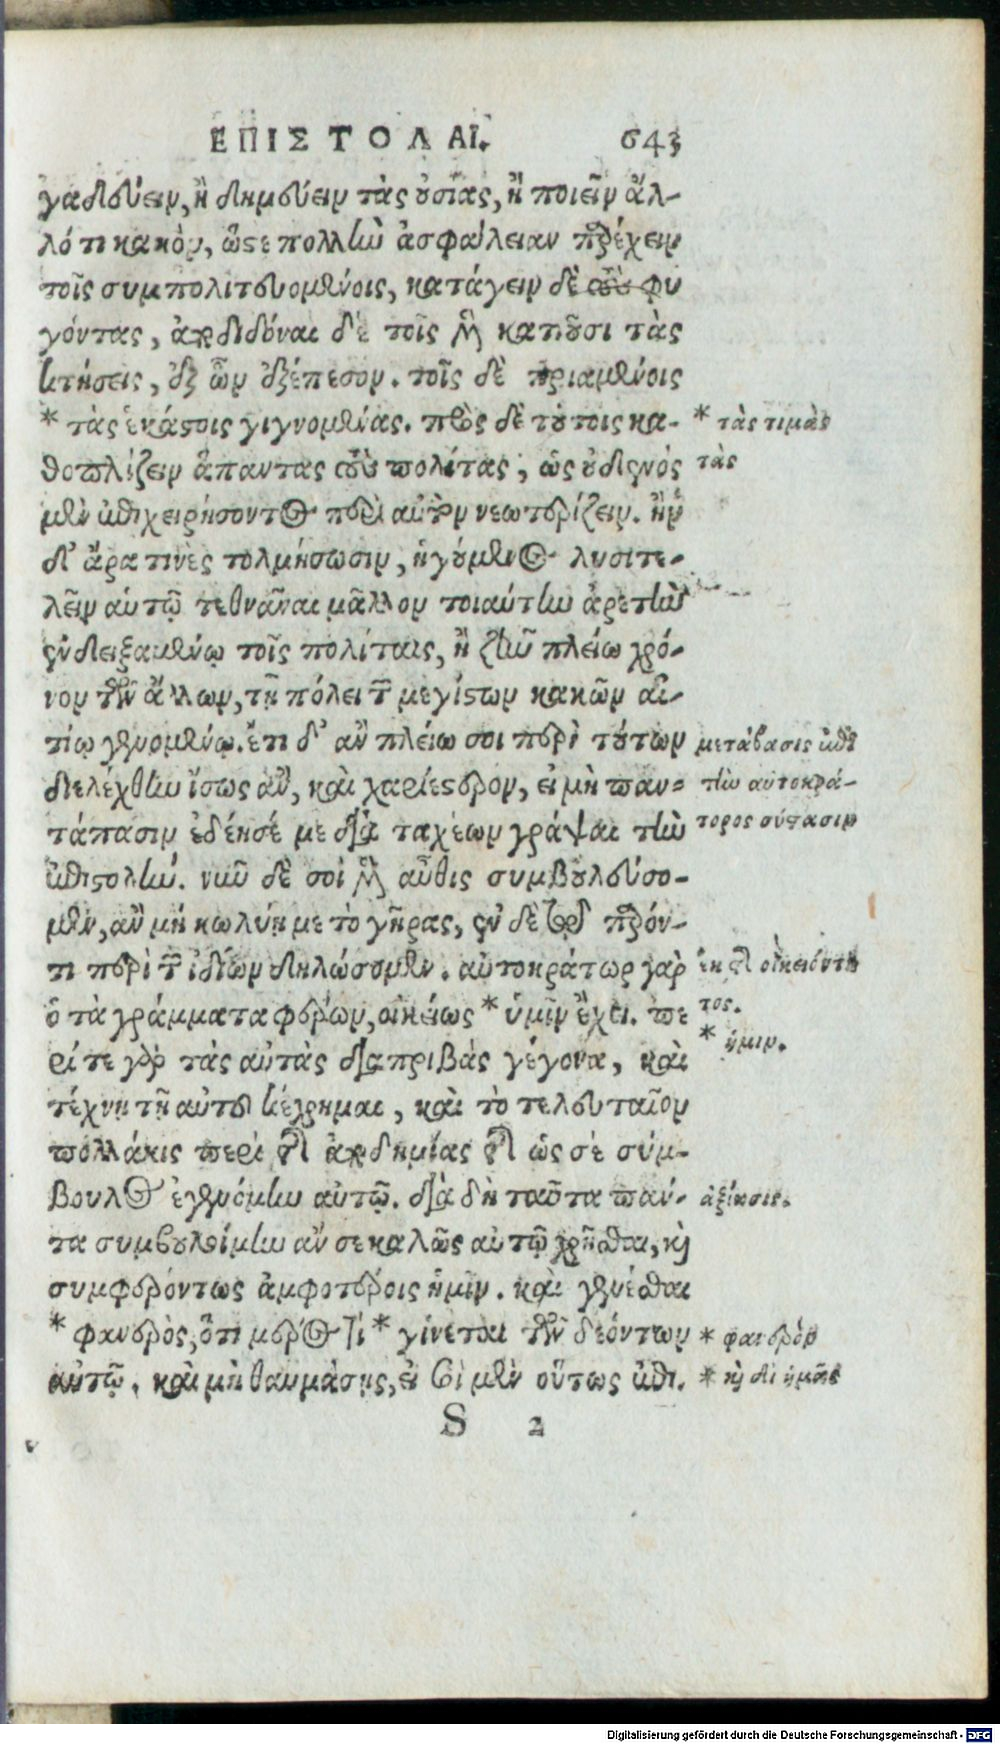 ΕΠΙΣΤΟΛΑΙ. 643
γαδεύειν, ἢ δημεύειν τὰς οὐσίας, ἢ ποιεῖν ἄλ-
λό τι κακὸν, ὥστε πολλὴν ἀσφάλειαν παρέχειν
τοῖς συμπολιτευομένοις, κατάγειν δὲ τοὺς φυ
γόντας, ἀποδιδόναι δὲ τοῖς μὲν κατιοῦσι τὰς
κτήσεις, ἐξ ὧν ἐξέπεσον. τοῖς δὲ πριαμένοις
* τὰς ἑκάστοις γιγνομένας. πρὸς δὲ τούτοις κα-
θοπλίζειν ἅπαντας τοὺς πολίτας, ὡς οὐδενός
μὲν ἐπιχειρήσοντος περὶ αὐτὴν νεωτερίζειν. ἢν
δ' ἄρα τινὲς τολμήσωσιν, ἡγούμενος λυσιτε-
λεῖν αὑτῷ τεθνᾶναι μᾶλλον τοιαύτην ἀρετὴν
ἐνδειξαμένῳ τοῖς πολίταις, ἢ ζῆν πλείω χρό-
νον τῶν ἄλλων, τῇ πόλει τῶν μεγίστων κακῶν αἰ-
τίῳ γενομένῳ. ἔτι δ' ἂν πλείω σοι περὶ τούτων
διελέχθην ἴσως ἂν, καὶ χαριέστερον, εἰ μὴ παν-
τάπασιν ἐδέησέ με διὰ ταχέων γράψαι τὴν
ἐπιστολήν. νῦν δὲ σοὶ μὲν αὖθις συμβουλεύσο-
μεν, ἂν μή κωλύῃ με τὸ γῆρας, ἐν δὲ τῷ παρόν-
τι περὶ τῶν ἰδίων δηλώσομεν. αὐτοκράτωρ γὰρ
ὁ τὰ γράμματα φέρων, οἰκείως * ὑμῖν ἔχει. πε
ρί τε γὰρ τὰς αὐτὰς διατριβὰς γέγονα, καὶ
τέχνῃ τῇ αὐτοῦ κέχρημαι, καὶ τὸ τελευταῖον
πολλάκις περὶ τῆς ἀποδημίας τῆς ὡς σὲ σύμ-
βουλος ἐγενόμην αὐτῷ. διὰ δὴ ταῦτα πάν-
τα συμβουλοίμην ἄν σε καλῶς αὐτῷ χρῆσθαι, καὶ
συμφερόντως ἀμφοτέροις ἡμῖν. καὶ γενέσθαι
* φανερὸς, ὅτι μέρος τί * γίνεται τῶν δεόντων
αὐτῷ. καὶ μὴ θαυμάσῃς, εἰ σοὶ μὲν οὕτως ἐπι.
S 2
* τὰς τιμὰς
τὰς
μετάβασις ἐπὶ
τὴν αὐτοκρά-
τορος σύστασιν
ἐκ τῆς οἰκειότη
τος.
* ἡμῖν.
ἀξίωσις.
* φανερὸν
* καὶ δι' ἡμᾶς
Digitalisierung gefördert durch die Deutsche Forschungsgemeinschaft - DFG